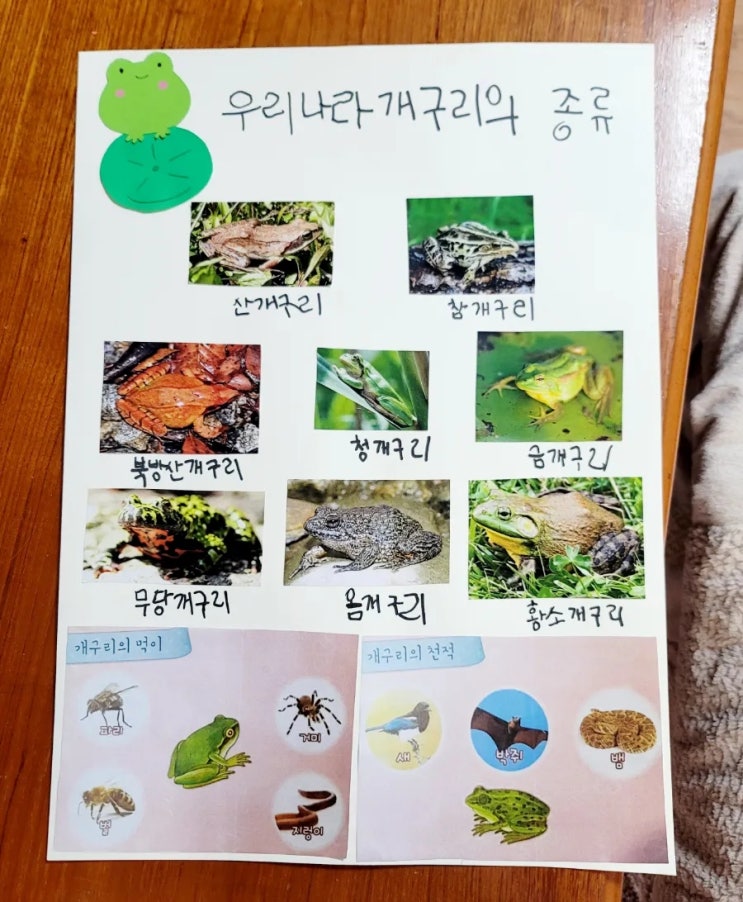 우리나라 개구리의 종류
산개구리
참개구리
북방산개구리
청개구리
금개구리
무당개구리
옴개구리
황소개구리
개구리의 먹이
파리
거미
벌
지렁이
개구리의 천적
새
박쥐
뱀